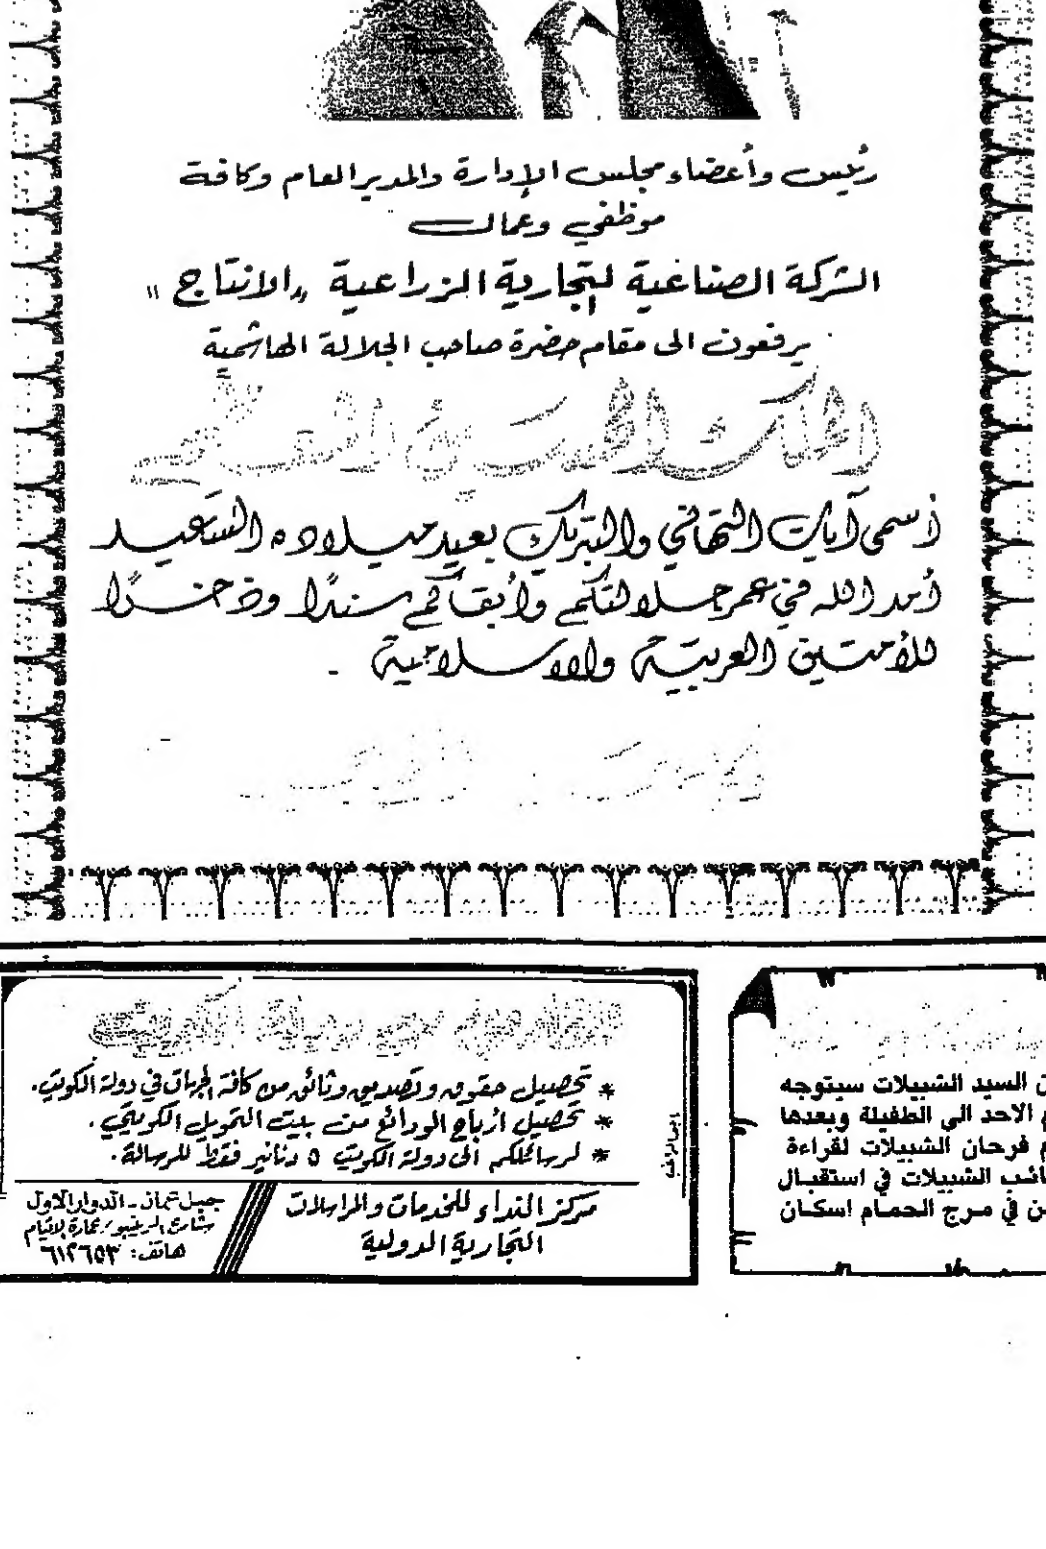 رئيس وأعضاء مجلس الإدارة والمدير العام وكافة
موظفي وعمال
الشركة الصناعية التجارية الزراعية "الانتاج"
يرفعون الى مقام حضرة صاحب الجلالة الهاشمية
الملك الحسين المعظم
أسمى آيات التهاني والتبريك بعيد ميلاده السعيد
أمد الله في عمر جلالتكم وأبقاكم سندًا وذخرًا
للأمتين العربية والاسلامية .
* تحصيل حقوق وتصديق وثائق من كافة الجهات في دولة الكويت.
* تحصيل أرباح الودائع من بيت التمويل الكويتي.
* لرسائلكم الى دولة الكويت ٥ دنانير فقط للرسالة.
مركز النداء للخدمات والمراسلات
التجارية الدولية
جبل عمان - الدوار الاول
شارع
هاتف: ٦١٢٦٥٣
ن السيد الشبيلات سيتوجه
م الاحد الى الطفيلة وبعدها
م فرحان الشبيلات لقراءة
ائب الشبيلات في استقبال
ن في مرج الحمام اسكان